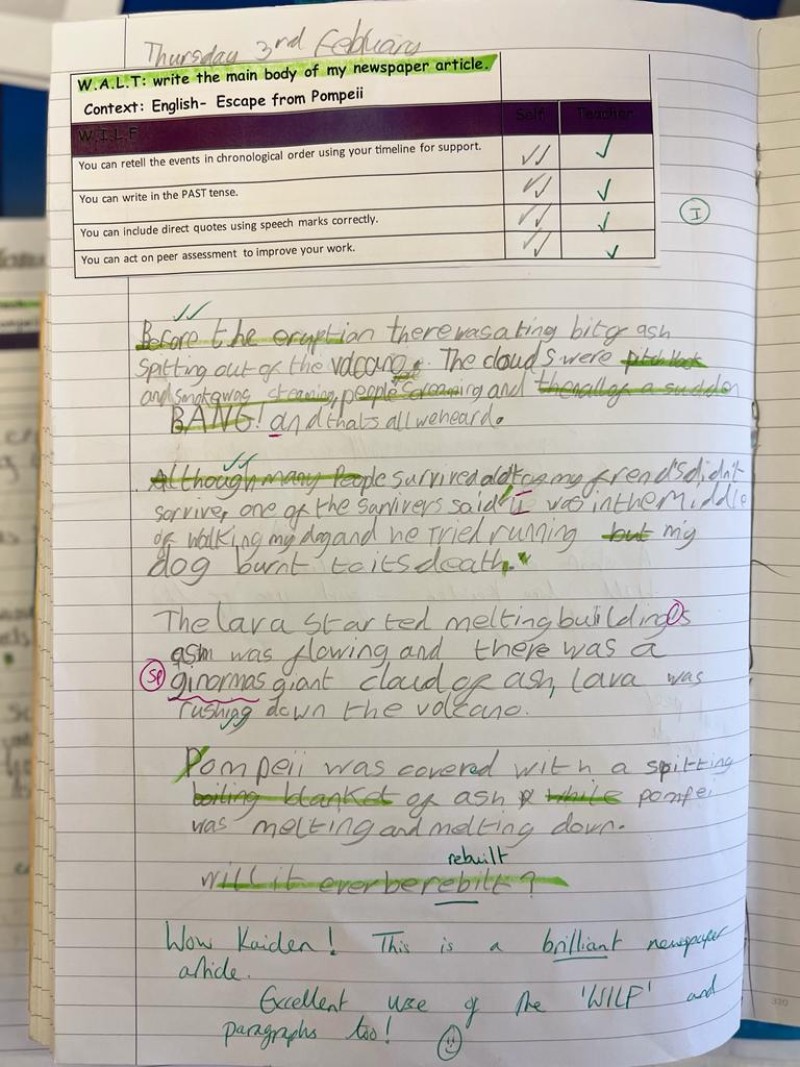 Thursday 3rd February
W.A.L.T: write the main body of my newspaper article.
Context: English- Escape from Pompeii
W.I.L.F Self Teacher
You can retell the events in chronological order using your timeline for support.
You can write in the PAST tense.
You can include direct quotes using speech marks correctly.
You can act on peer assessment to improve your work.
I
Before the eruption there was a ting bit of ash
spitting out of the volcano. The clouds were pitch
and was steaming, people screaming and then all of a sudden
BANG! and thats all we heard.
Although many People survived my frends didn't
sorvive, one of the said "I was in the Middle
of walking my dog and he Tried running but my
dog burnt to its death."
The lava started melting buildings
ash was flowing and there was a
sp ginormas giant cloud of ash, lava was
rushing down the volcano.
Pompeii was covered with a spitting
boiling blanket of ash while pompe
was melting and melting down.
rebuilt
will it ever be rebilt?
Wow Kaiden! This is a brilliant newspaper
article.
Excellent use of the 'WILF' and
paragraphs too!